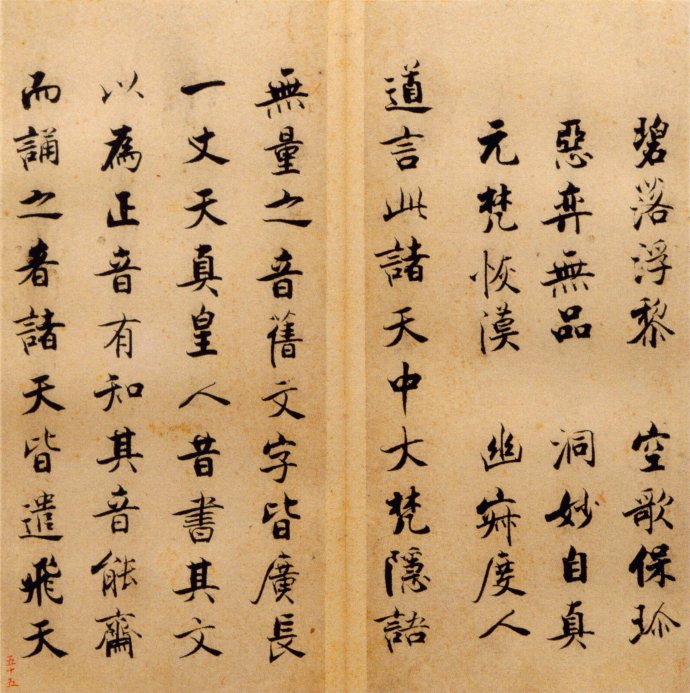 碧落浮黎 空歌保珍
惡弈無品 洞妙自真
元梵恢漠 幽寂度人
道言此諸天中大梵隱語
無量之音舊文字皆廣長
一丈天真皇人昔書其文
以為正音有知其音能齋
而誦之者諸天皆遣飛天
五十五